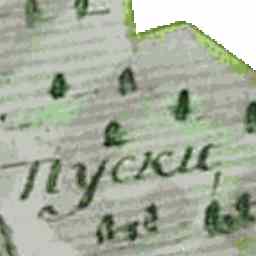 пуски